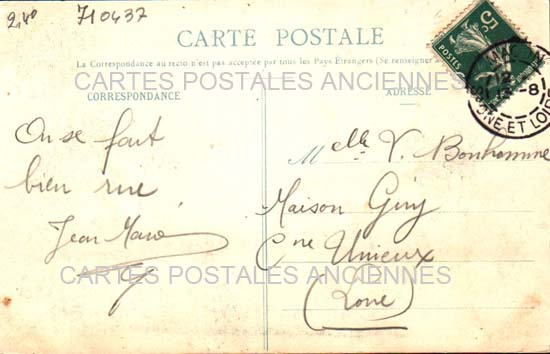 2,40 710437
CARTE POSTALE
La Correspondance au recto n'est pas acceptée par tous les Pays Étrangers (Se renseigner
CARTES POSTALES ANCIENNES
CORRESPONDANCE
ADRESSE
5
POSTES
12
-8
ET LOIRE
On se fait
bien
Jean
Melle V. Bonhomme
Maison Giry
Cne Unieux
(Loire)
CARTES POSTALES ANCIENNES